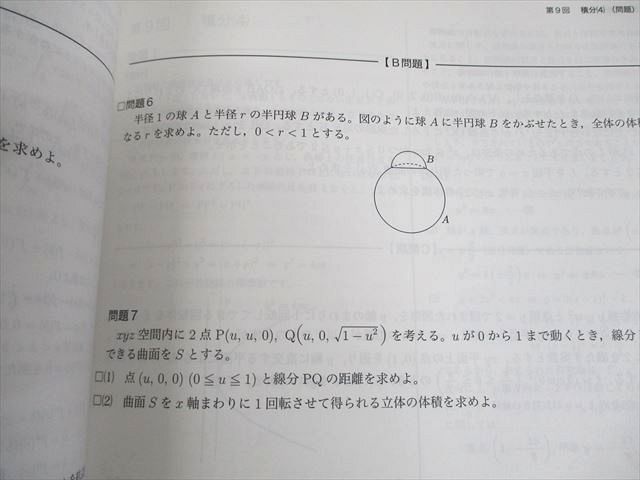 第9回 積分(4) (問題)
【B問題】
□問題6
半径1の球Aと半径rの半円球Bがある。図のように球Aに半円球Bをかぶせたとき，全体の体積
なるrを求めよ。ただし，0<r<1とする。
を求めよ。
B
A
問題7
xyz空間内に2点P(u, u, 0), Q(u, 0, √(1−u²))を考える。uが0から1まで動くとき，線分
できる曲面をSとする。
□(1) 点(u, 0, 0) (0≦u≦1)と線分PQの距離を求めよ。
□(2) 曲面Sをx軸まわりに1回転させて得られる立体の体積を求めよ。